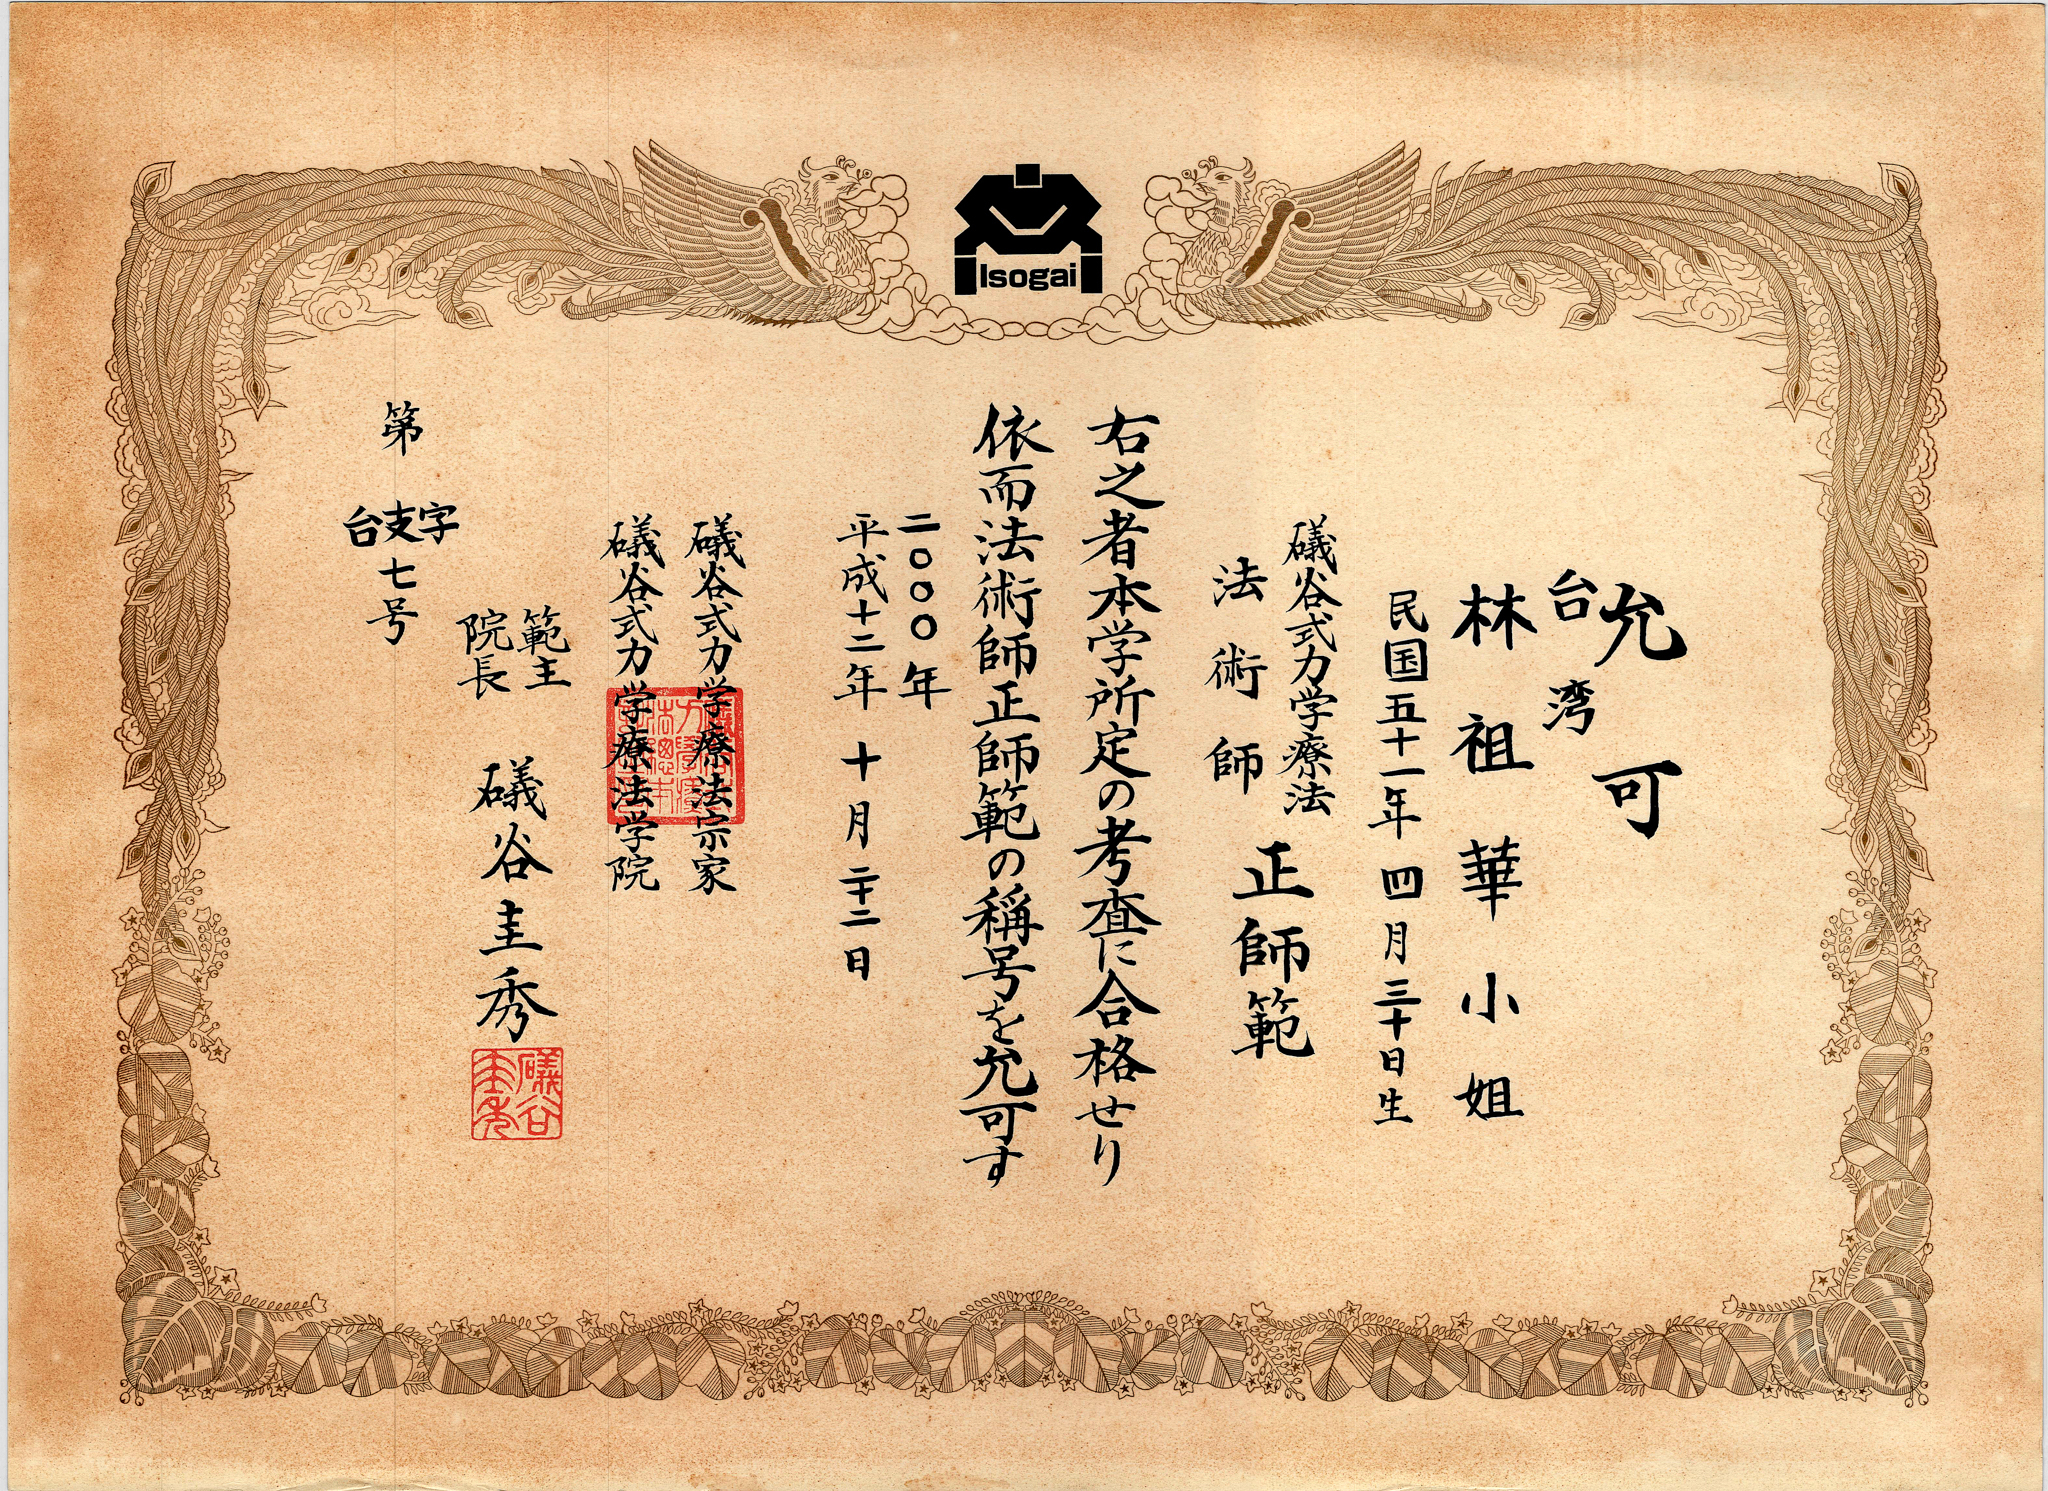 Isogai
允可
台湾
林祖華小姐
民国五十一年四月三十日生
礒谷式力学療法
法術師 正師範
右之者本学所定の考査に合格せり
依而法術師正師範の稱号を允可す
二〇〇〇年
平成十二年 十月 二十二日
礒谷式力学療法宗家
礒谷式力学療法学院
範主
院長
礒谷圭秀
礒谷圭秀
第 台支字 七号